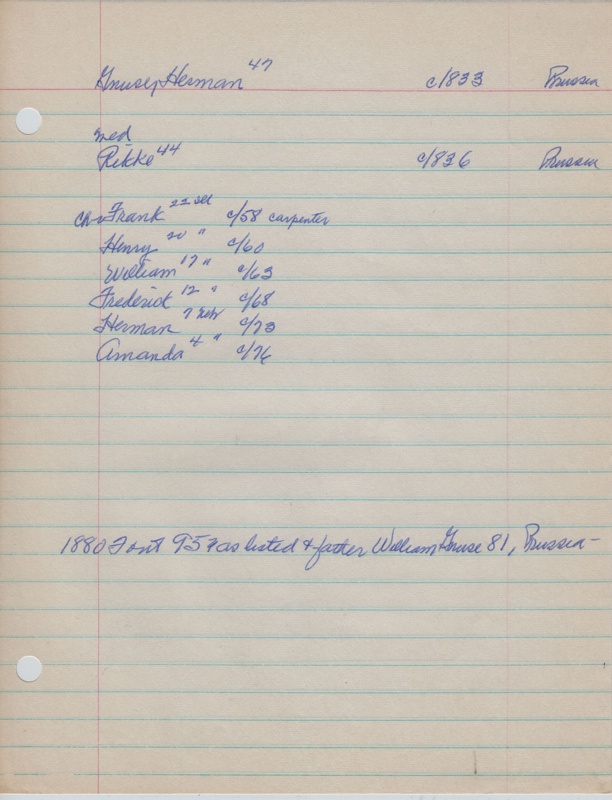 Gruse, Herman 47 c/833 Prussia
med
Rikke 44 c/836 Prussia
Frank 22 Ill c/58 carpenter
Henry 20 " c/60
William 17 " c/63
Frederick 12 " c/68
Herman 7 Nebr c/73
Amanda 4 " c/76
1880 Font 95 as listed & father William Gruse 81, Prussia -